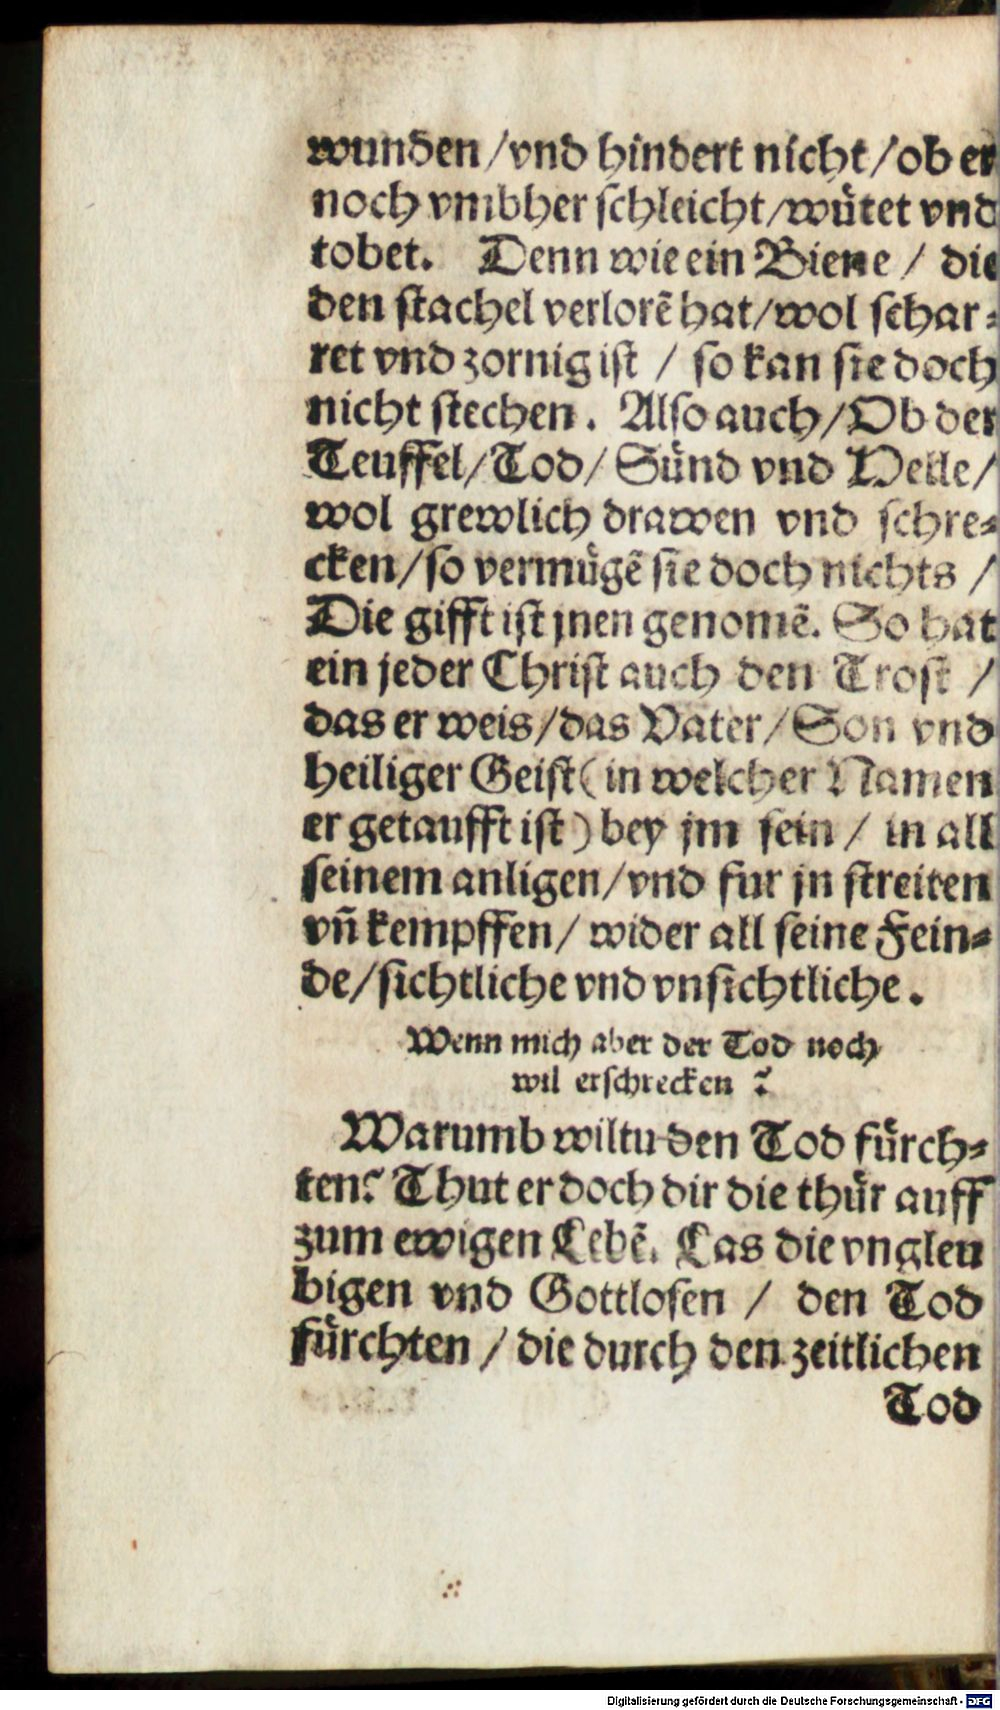 wunden /vnd hindert nicht /ob er
noch vmbher schleicht /wütet vnd
tobet. Denn wie ein Biene / die
den stachel verlorẽ hat /wol schar⸗
ret vnd zornig ist / so kan sie doch
nicht stechen. Also auch /Ob der
Teuffel /Tod / Sünd vnd Helle /
wol grewlich drawen vnd schre⸗
cken /so vermügẽ sie doch nichts /
Die gifft ist jnen genomẽ. So hat
ein jeder Christ auch den Trost /
das er weis /das Vater / Son vnd
heiliger Geist (in welcher Namen
er getaufft ist) bey jm sein / in all
seinem anligen /vnd fur jn streiten
vñ kempffen / wider all seine Fein⸗
de /sichtliche vnd vnsichtliche.
Wenn mich aber der Tod noch
wil erschrecken ?
Warumb wiltu den Tod fürch⸗
ten? Thut er doch dir die thür auff
zum ewigen Lebẽ. Las die vngleu
bigen vnd Gottlosen / den Tod
fürchten / die durch den zeitlichen
Tod
Digitalisierung gefördert durch die Deutsche Forschungsgemeinschaft - DFG